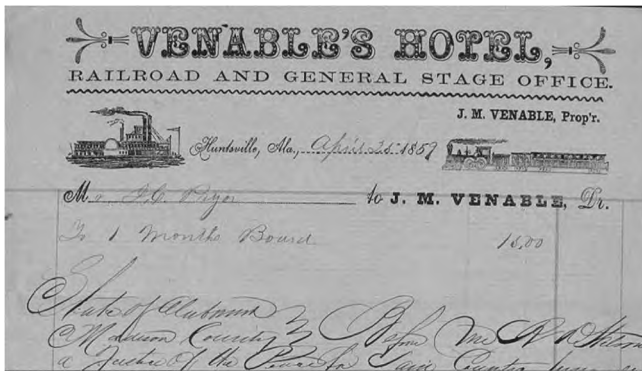 VENABLE'S HOTEL,
RAILROAD AND GENERAL STAGE OFFICE.
J. M. VENABLE, Prop'r.
Huntsville, Ala., April 25 1859
M to J. M. VENABLE, Dr.
To 1 Months Board 15.00
State of Alabama
Madison County Before Me
a Justice of the Peace for Said County